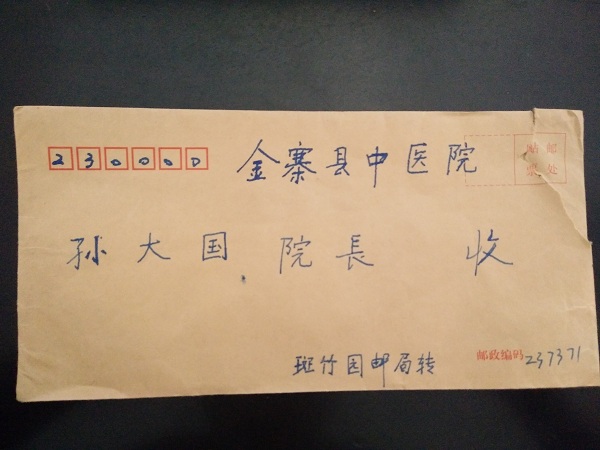 230000
金寨县中医院
贴邮
票处
孙大国 院長 收
斑竹园邮局转
邮政编码 237371